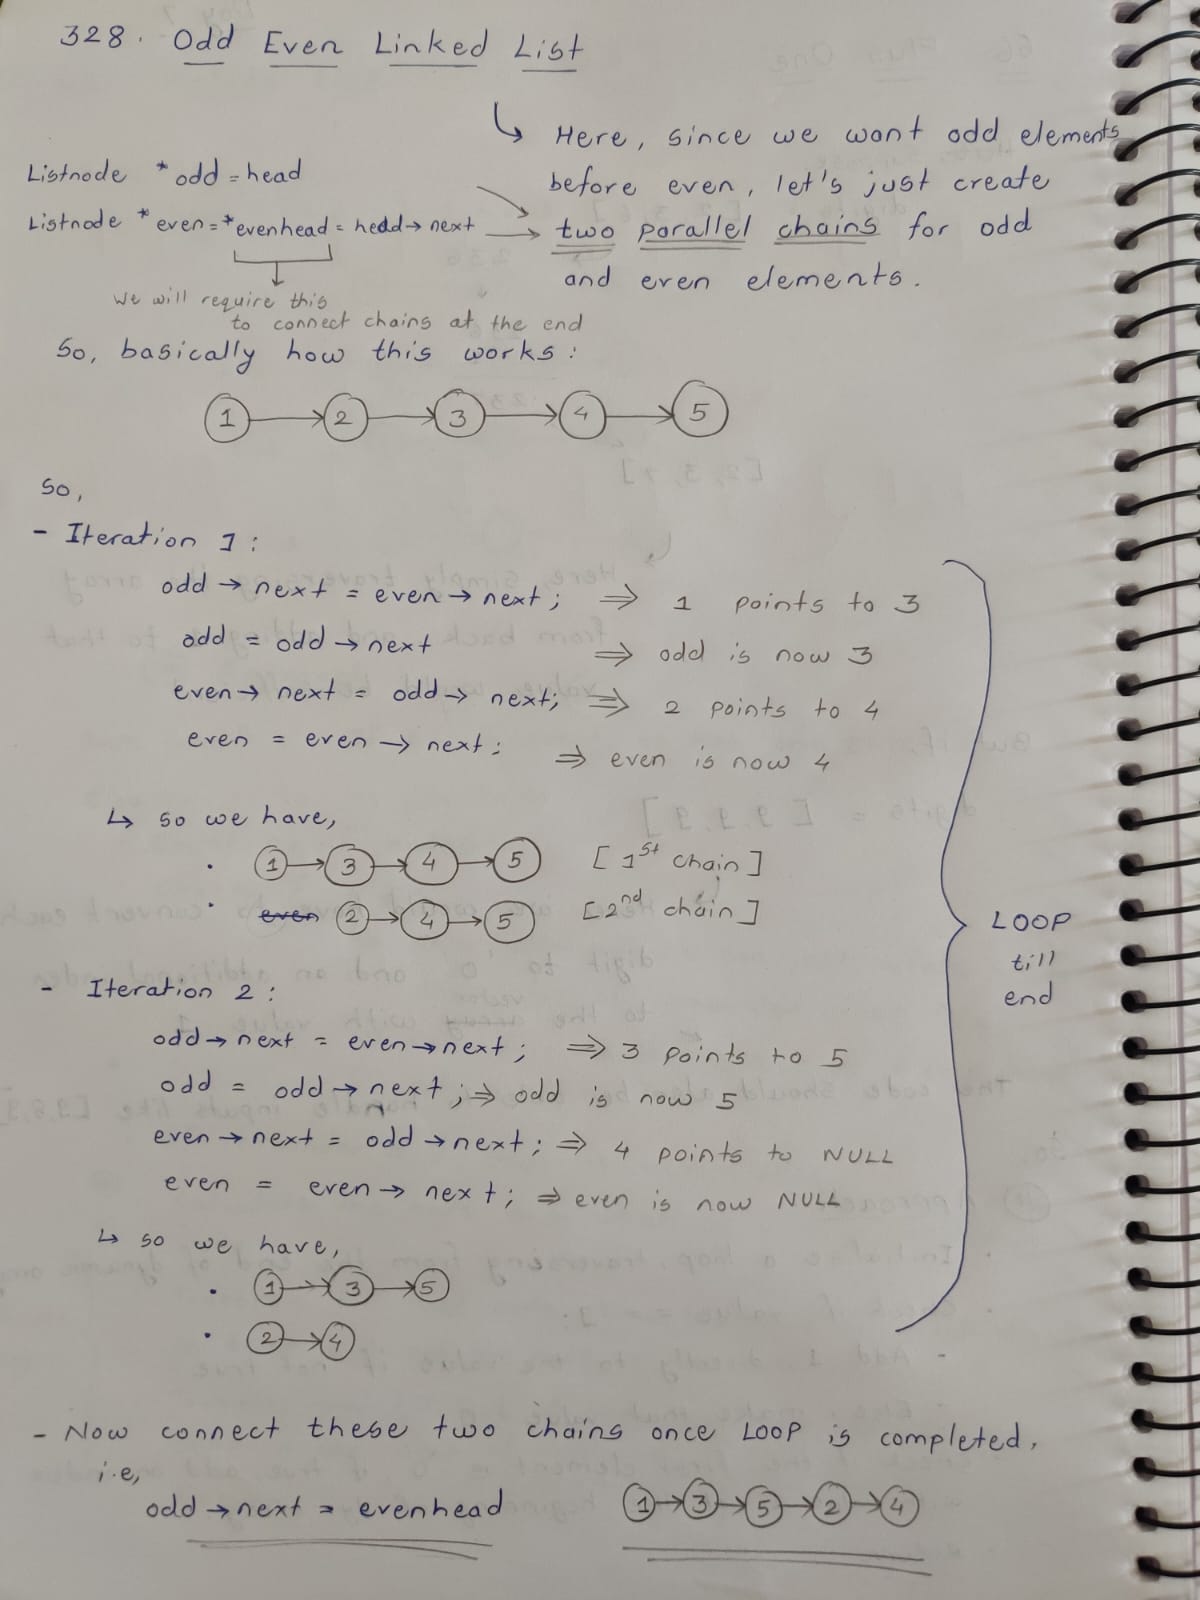 328. Odd Even Linked List
↳ Here, since we want odd elements
before even, let's just create
two parallel chains for odd
and even elements.
Listnode *odd = head
Listnode *even = *evenhead = head → next
We will require this
to connect chains at the end
So, basically how this works :
1 → 2 → 3 → 4 → 5
So,
- Iteration 1 :
odd → next = even → next ; ⇒ 1 points to 3
odd = odd → next ⇒ odd is now 3
even → next = odd → next; ⇒ 2 points to 4
even = even → next ; ⇒ even is now 4
↳ so we have,
• 1 → 3 → 4 → 5 [ 1st chain ]
• even 2 → 4 → 5 [ 2nd chain ]
- Iteration 2 :
odd → next = even → next ; ⇒ 3 points to 5
odd = odd → next ; ⇒ odd is now 5
even → next = odd → next ; ⇒ 4 points to NULL
even = even → next ; ⇒ even is now NULL
↳ so we have,
• 1 → 3 → 5
• 2 → 4
LOOP
till
end
- Now connect these two chains once LOOP is completed,
i.e,
odd → next = evenhead 1 → 3 → 5 → 2 → 4